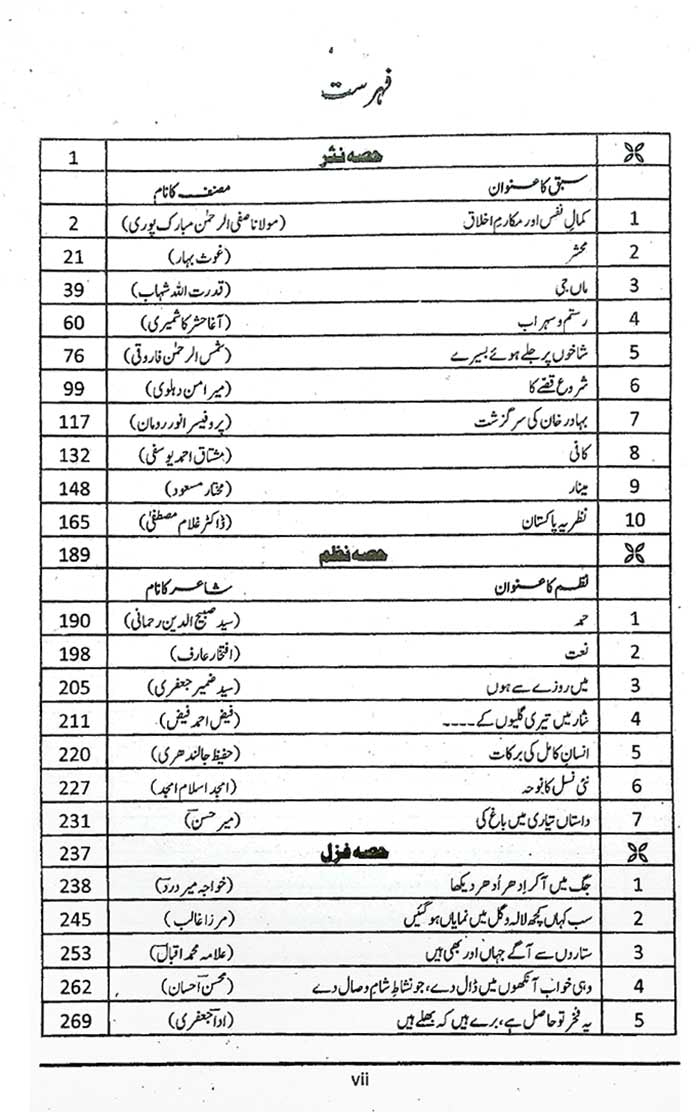 فہرست
حصہ نثر 1
سبق کا عنوان مصنف کا نام
1 کمالِ نفس اور مکارمِ اخلاق (مولانا صفی الرحمٰن مبارک پوری) 2
2 محشر (غوث بہار) 21
3 ماں جی (قدرت اللہ شہاب) 39
4 رستم و سہراب (آغا حشر کاشمیری) 60
5 شاخوں پر جلے ہوئے بسیرے (شمس الرحمٰن فاروقی) 76
6 شروع قصّے کا (میر امن دہلوی) 99
7 بہادر خان کی سرگزشت (پروفیسر انور رومان) 117
8 کافی (مشتاق احمد یوسفی) 132
9 مینار (مختار مسعود) 148
10 نظریہ پاکستان (ڈاکٹر غلام مصطفیٰ) 165
حصہ نظم 189
نظم کا عنوان شاعر کا نام
1 حمد (سید صبیح الدین رحمانی) 190
2 نعت (افتخار عارف) 198
3 میں روزے سے ہوں (سید ضمیر جعفری) 205
4 نثار میں تیری گلیوں کے ---- (فیض احمد فیض) 211
5 انسانِ کامل کی برکات (حفیظ جالندھری) 220
6 نئی نسل کا نوحہ (امجد اسلام امجد) 227
7 داستاں تیاری میں باغ کی (میر حسنؔ) 231
حصہ غزل 237
1 جگ میں آ کر اِدھر اُدھر دیکھا (خواجہ میر دردؔ) 238
2 سب کہاں کچھ لالہ و گل میں نمایاں ہو گئیں (مرزا غالبؔ) 245
3 ستاروں سے آگے جہاں اور بھی ہیں (علامہ محمد اقبالؔ) 253
4 وہی خواب آنکھوں میں ڈال دے، جو نشاطِ شامِ وصال دے (محسنؔ احسان) 262
5 یہ فخر تو حاصل ہے، برے ہیں کہ بھلے ہیں (اداؔ جعفری) 269
vii